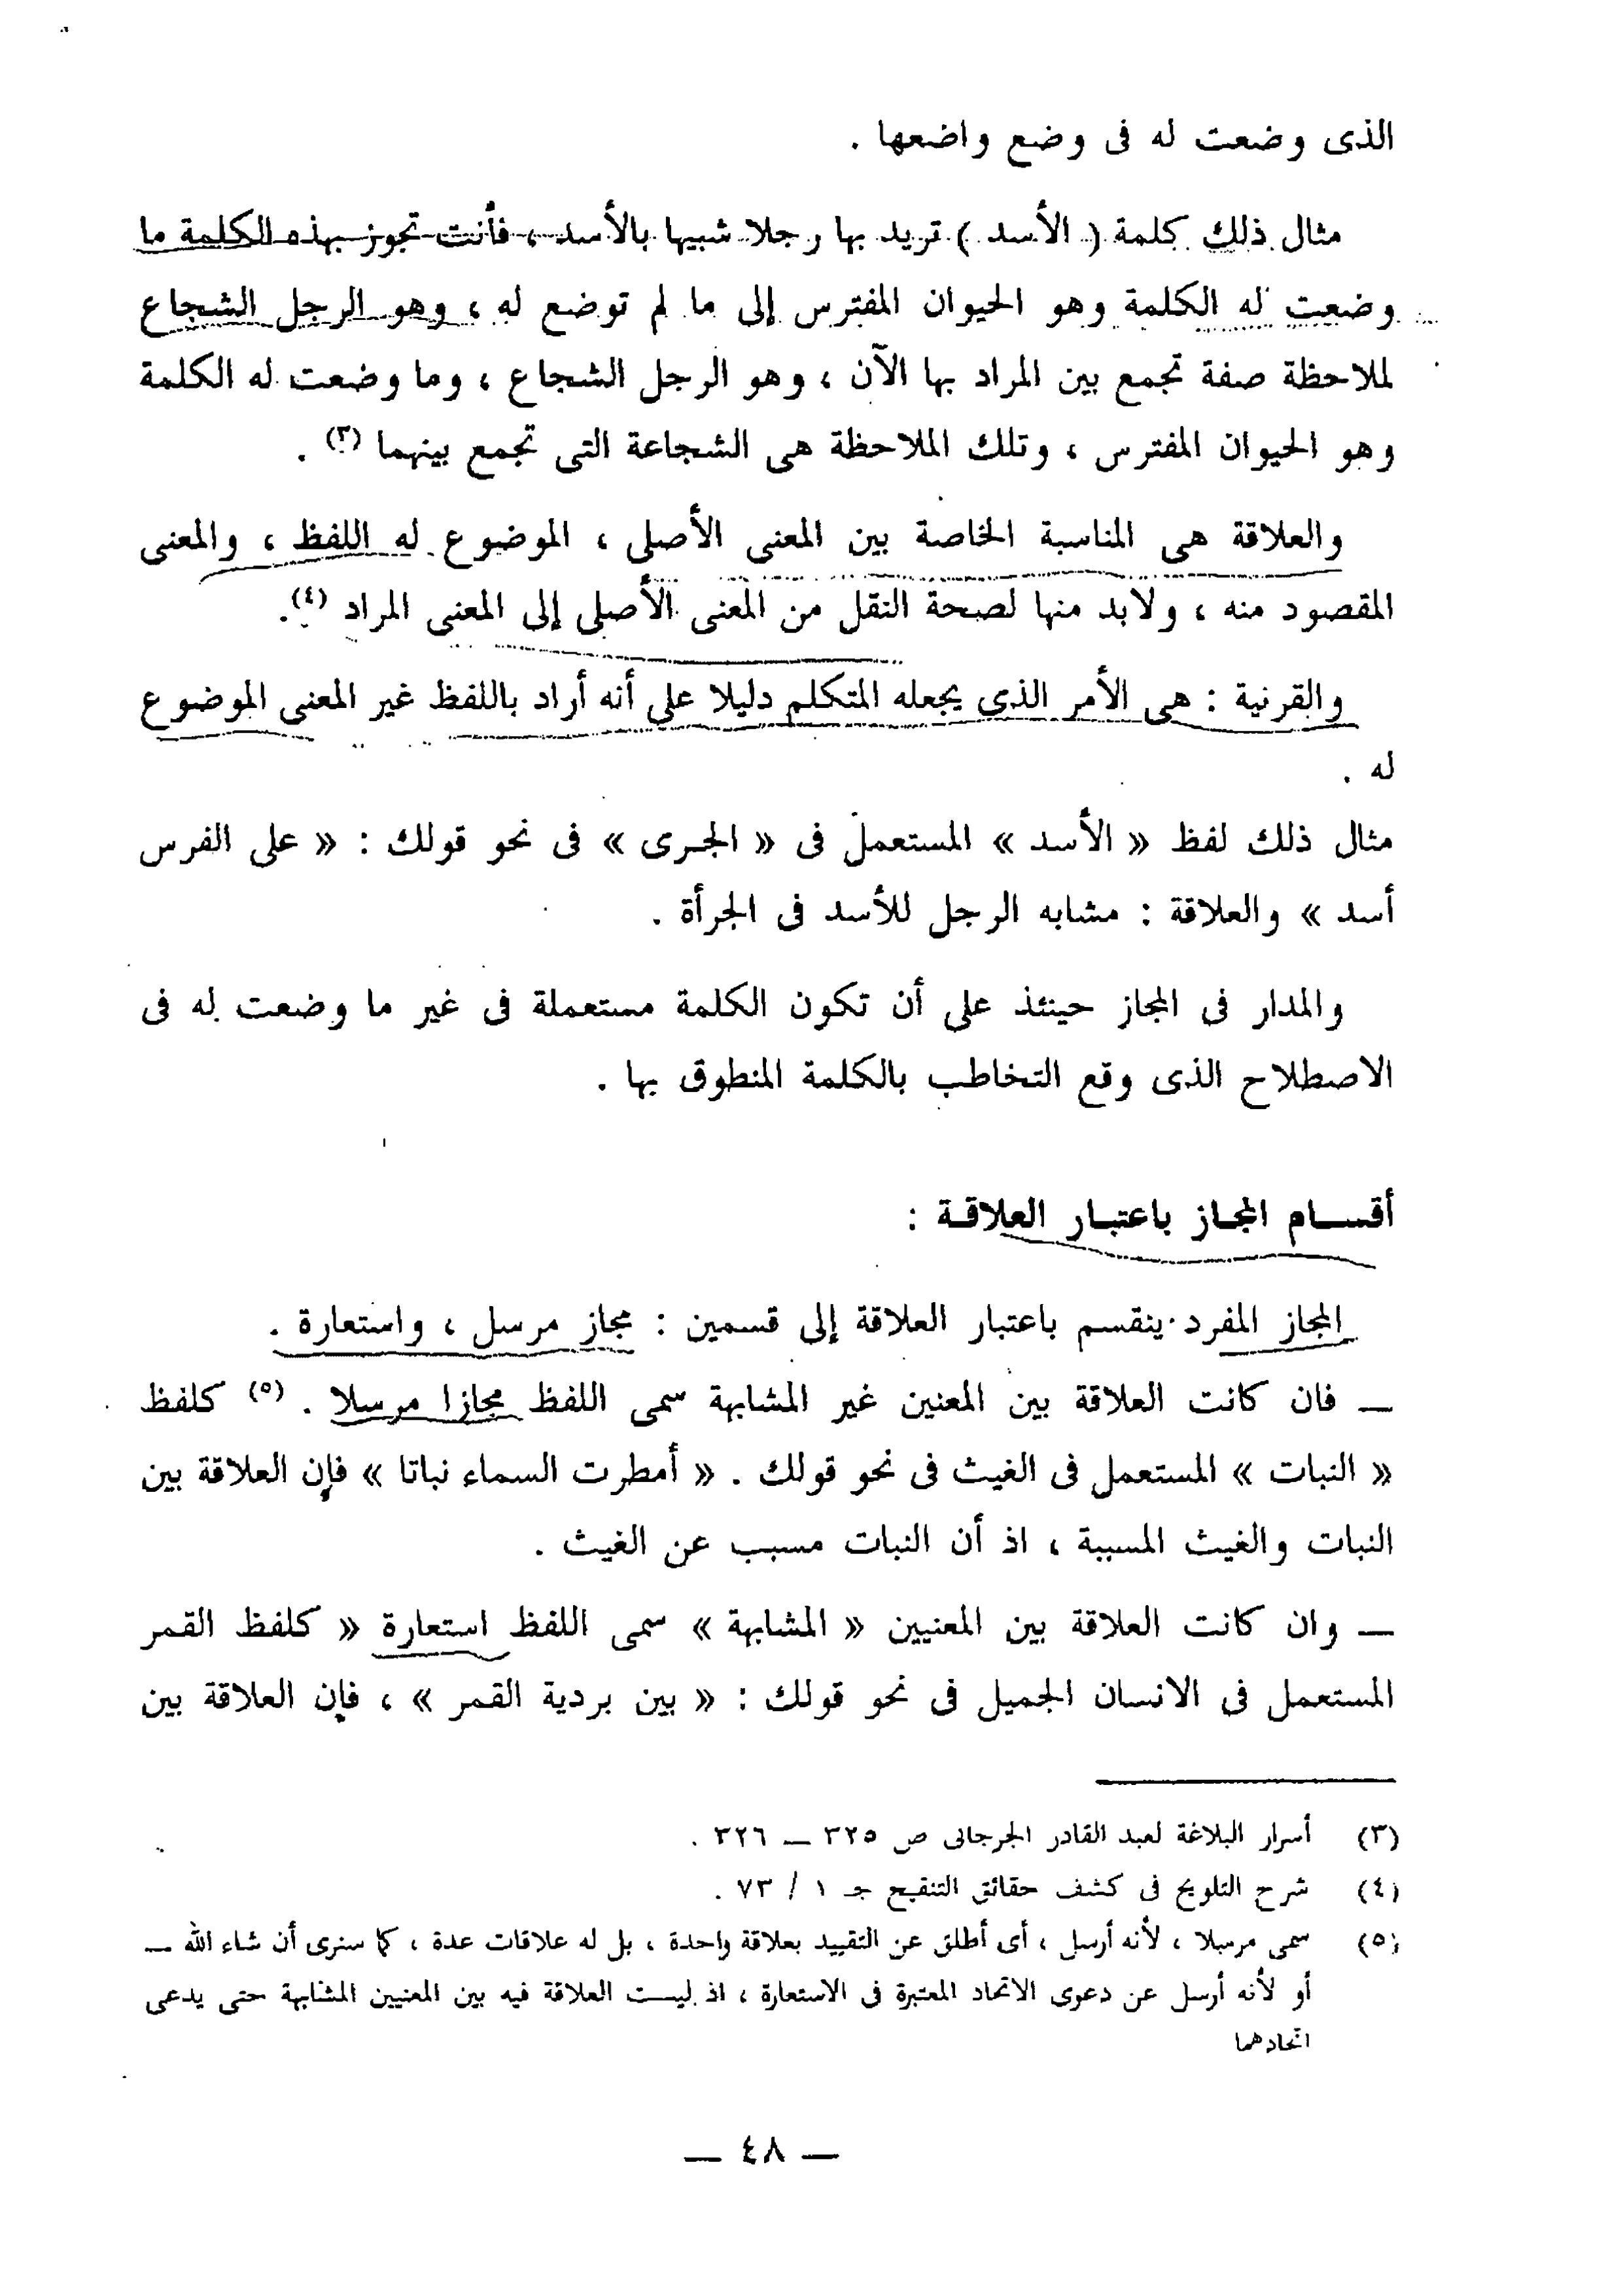 الذى وضعت له فى وضع واضعها .
مثال ذلك كلمة ( الأسد ) تريد بها رجلا شبيها بالأسد ، فأنت تجوز بهذه الكلمة ما
وضعت له الكلمة وهو الحيوان المفترس إلى ما لم توضع له ، وهو الرجل الشجاع
لملاحظة صفة تجمع بين المراد بها الآن ، وهو الرجل الشجاع ، وما وضعت له الكلمة
وهو الحيوان المفترس ، وتلك الملاحظة هى الشجاعة التى تجمع بينهما (٣) .
والعلاقة هى المناسبة الخاصة بين المعنى الأصلى ، الموضوع له اللفظ ، والمعنى
المقصود منه ، ولابد منها لصحة النقل من المعنى الأصلى إلى المعنى المراد (٤) .
والقرنية : هى الأمر الذى يجعله المتكلم دليلا على أنه أراد باللفظ غير المعنى الموضوع
له .
مثال ذلك لفظ « الأسد » المستعمل فى « الجرى » فى نحو قولك : « على الفرس
أسد » والعلاقة : مشابه الرجل للأسد فى الجرأة .
والمدار فى المجاز حينئذ على أن تكون الكلمة مستعملة فى غير ما وضعت له فى
الاصطلاح الذى وقع التخاطب بالكلمة المنطوق بها .
أقسام المجاز باعتبار العلاقة :
المجاز المفرد ينقسم باعتبار العلاقة إلى قسمين : مجاز مرسل ، واستعارة .
— فان كانت العلاقة بين المعنين غير المشابهة سمى اللفظ مجازا مرسلا . (٥) كلفظ
« النبات » المستعمل فى الغيث فى نحو قولك . « أمطرت السماء نباتا » فإن العلاقة بين
النبات والغيث المسببة ، اذ أن النبات مسبب عن الغيث .
— وان كانت العلاقة بين المعنيين « المشابهة » سمى اللفظ استعارة « كلفظ القمر
المستعمل فى الانسان الجميل فى نحو قولك : « بين بردية القمر » ، فإن العلاقة بين
(٣) أسرار البلاغة لعبد القادر الجرجانى ص ٣٢٥ — ٣٢٦ .
(٤) شرح التلويح فى كشف حقائق التنقيح جـ ١ / ٧٣ .
(٥) سمى مرسلا ، لأنه أرسل ، أى أطلق عن التقييد بعلاقة واحدة ، بل له علاقات عدة ، كما سنرى أن شاء الله —
أو لأنه أرسل عن دعوى الاتحاد المعتبرة فى الاستعارة ، اذ ليست العلاقة فيه بين المعنيين المشابهة حتى يدعى
اتحادهما
— ٤٨ —